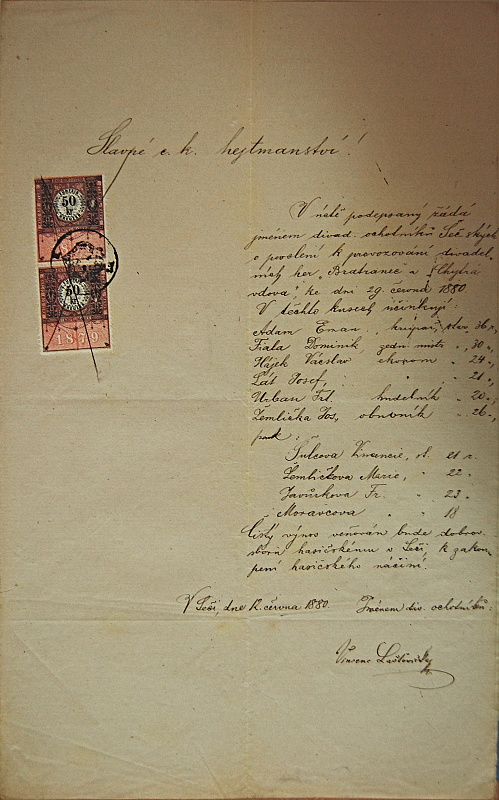 Slavné c. k. hejtmanství!
50
kr
50
kr
1879
V úctě podepsaný žádá
jménem divad. ochotníků Sečských
o povolení k provozování divadel-
ních her „Bratranec“ a „Chytrá
vdova“, ke dni 29. června 1880.
V těchto kusech účinkují:
Adam Eman., stár 36 r.,
Fiala Dominik, zedn. mistr „ 30 „
Hájek Václav ekonom „ 24 „
Lát Josef, „ „ 21 „
Urban Frt. hudebník „ 20 „
Zemlička Jos, obuvník „ 26 „
pak:
Šulcova st. 21 r.
Zemličkova Marie, „ 22 „
Javůrkova Fr. „ 23 „
Moravcova „ „ 18
Čistý výnos věnován bude dobrov.
sboru hasičskému v Seči, k zakou-
pení hasičského náčiní.
V Seči, dne 12. června 1880.
Jménem div. ochotníků:
Vincenc